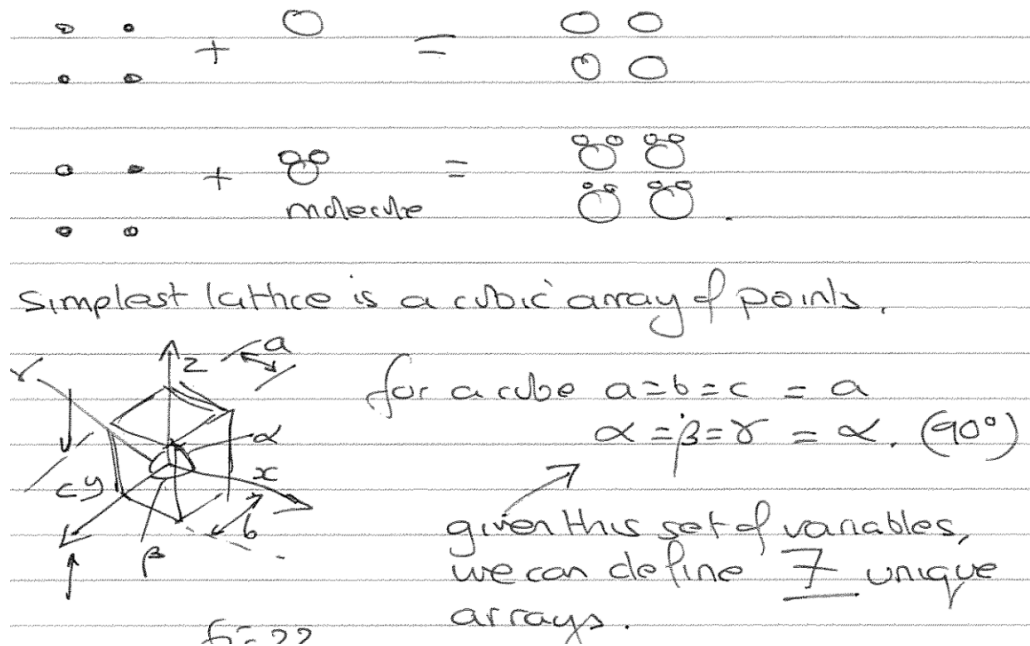 + =
+ =
molecule
Simplest lattice is a cubic array of points.
z
a
γ
α
x
c y
b
β
for a cube a=b=c = a
α=β=γ = α. (90°)
given this set of variables,
we can define 7 unique
arrays.